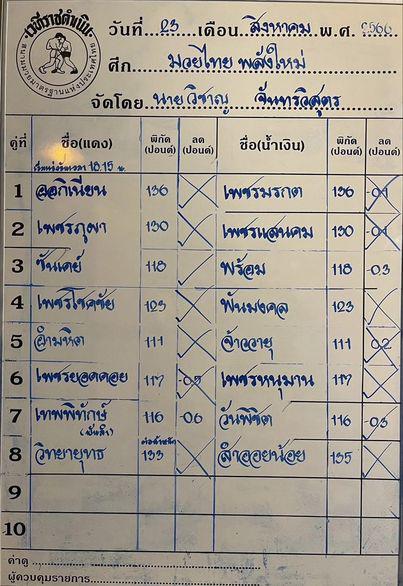 เวทีราชดำเนิน
สนามมวยมาตรฐานแห่งประเทศไทย
วันที่ 23 เดือน สิงหาคม พ.ศ. 2566
ศึก มวยไทย พลังใหม่
จัดโดย นาย วิชาญ จันทรวิสูตร
คู่ที่ ชื่อ(แดง) พิกัด (ปอนด์) ลด (ปอนด์) ชื่อ(น้ำเงิน) พิกัด (ปอนด์) ลด (ปอนด์)
18.15 น.
1 ออกิเนียน 136 เพชรมรกต 136 -01
2 เพชรภูผา 130 เพชรแสนคม 130 -01
3 ซันเดย์ 118 พร้อม 118 -03
4 เพชรโชคชัย 123 พันมงคล 123
5 อำมหิต 111 จ้าววายุ 111 02
6 เพชรยอดดอย 117 -05 เพชรหนุมาน 117
7 เทพพิทักษ์ 116 -06 วันพิชิต 116 -03
8 วิทยายุทธ 133 ลำออยน้อย 135
9
10
ค่าดู
ผู้ควบคุมรายการ